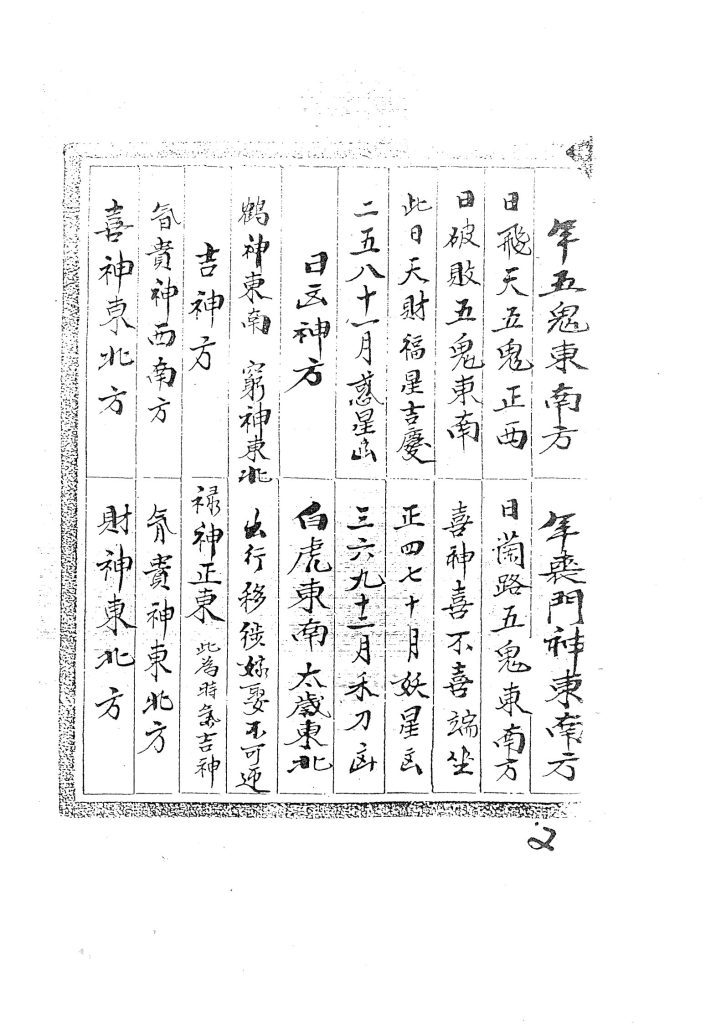 年五鬼東南方　年喪門神東南方
日飛天五鬼正西　日蘭路五鬼東南方
日破敗五鬼東南　喜神喜不喜端坐
此日天財福星吉慶　正四七十月妖星凶
二五八十一月惑星凶　三六九十二月禾刀凶
日凶神方　白虎東南太歲東北
鶴神東南　窮神東北　出行移徙嫁娶不可迎
吉神方　祿神正東　此為時氣吉神
貴神西南方　貴神東北方
喜神東北方　財神東北方
2